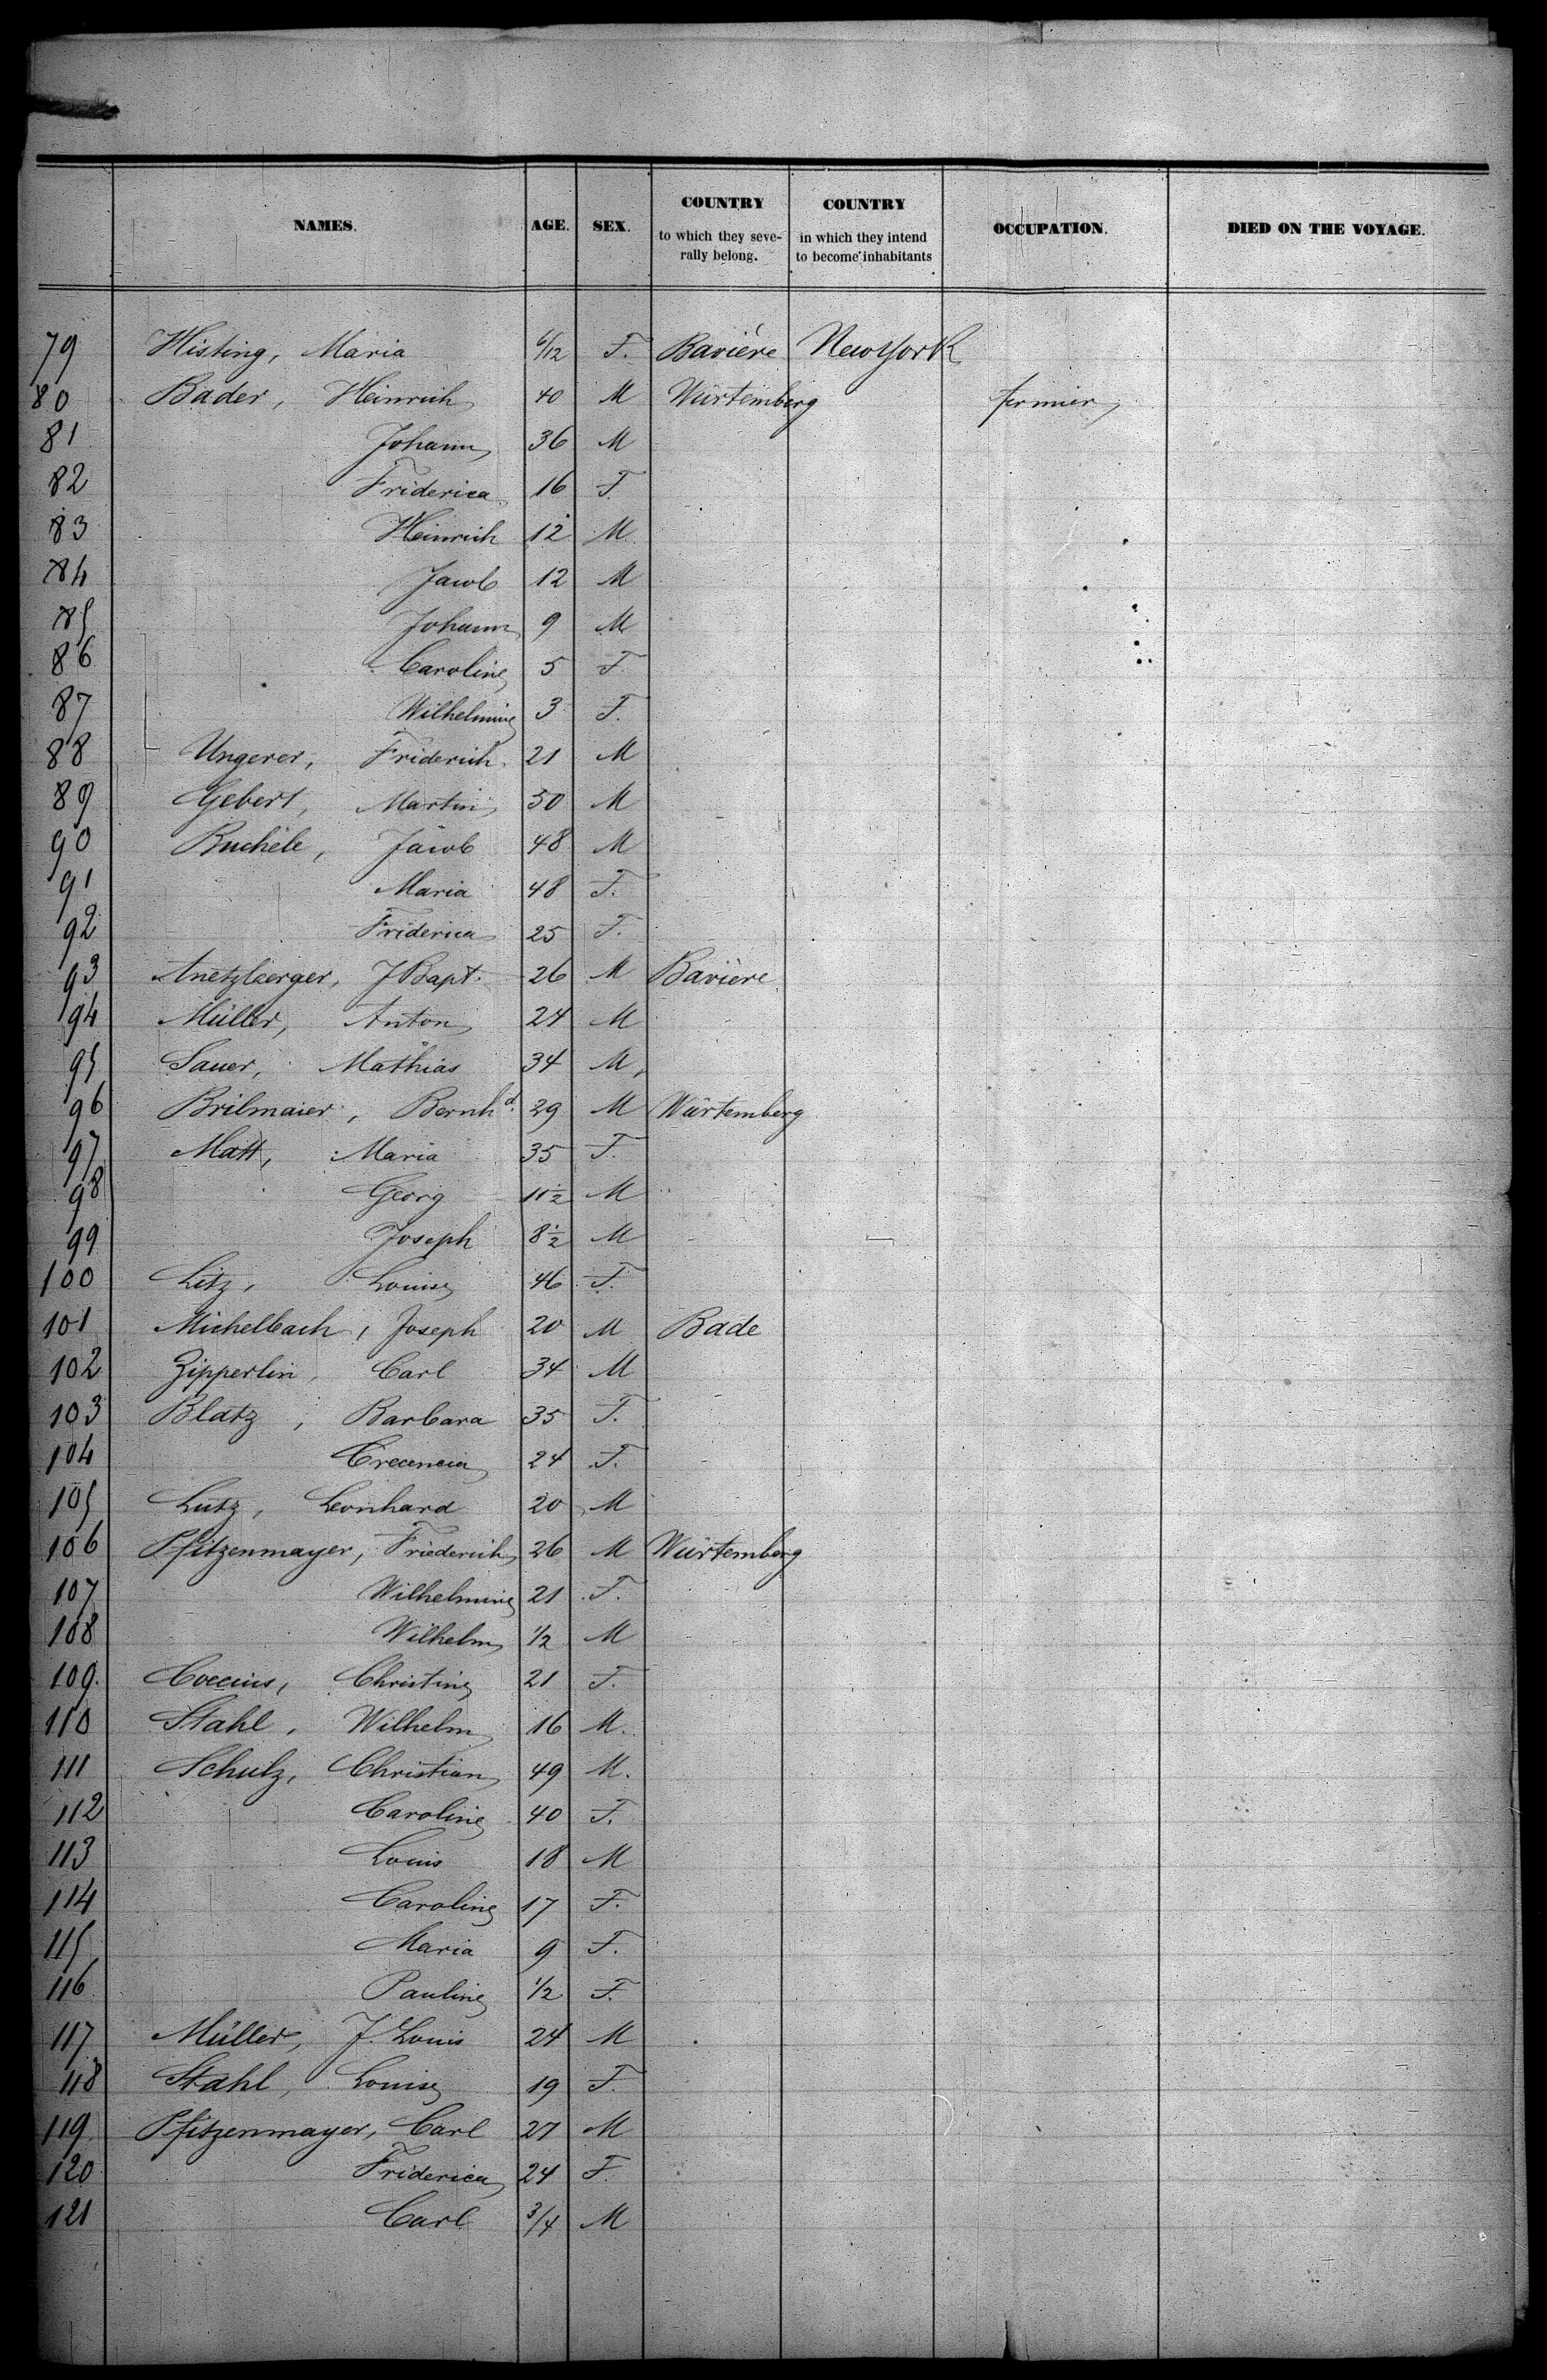 NAMES. AGE. SEX. COUNTRY to which they severally belong. COUNTRY in which they intend to become inhabitants OCCUPATION. DIED ON THE VOYAGE.
79 Histing, Maria 6/12 F. Bavière NewYork
80 Bader, Heinrich 40 M Würtemberg fermier
81 Johann 36 M
82 Friderica 16 F
83 Heinrich 12 M
84 Jacob 12 M
85 Johann 9 M
86 Caroline 5 F
87 Wilhelmine 3 F.
88 Ungerer, Friderich 21 M
89 Gebert, Martin 50 M
90 Buchele, Jacob 48 M
91 Maria 48 F.
92 Friderica 25 F.
93 Anetzberger, J Bapt. 26 M Bavière
94 Müller, Anton 24 M
95 Sauer, Mathias 34 M
96 Brilmaier, Bernhd. 29 M Würtemberg
97 Matt, Maria 35 F.
98 Georg 11½ M
99 Joseph 8½ M
100 Litz, Louise 46 F.
101 Michelbach, Joseph 20 M Bade
102 Zipperlin, Carl 34 M
103 Blatz, Barbara 35 F.
104 Crecencia 24 F.
105 Lutz, Leonhard 20 M
106 Pfitzenmayer, Friederich 26 M Würtemberg
107 Wilhelmine 21 F.
108 Wilhelm ½ M
109. Coccius, Christine 21 F.
110 Stahl, Wilhelm 16 M.
111 Schulz, Christian 49 M.
112 Caroline 40 F.
113 Louis 18 M
114 Caroline 17 F.
115 Maria 9 F.
116 Pauline ½ F.
117 Müller, J. Louis 24 M
118 Stahl, Louise 19 F.
119 Pfitzenmayer, Carl 27 M
120 Friderica 24 F.
121 Carl 3/4 M